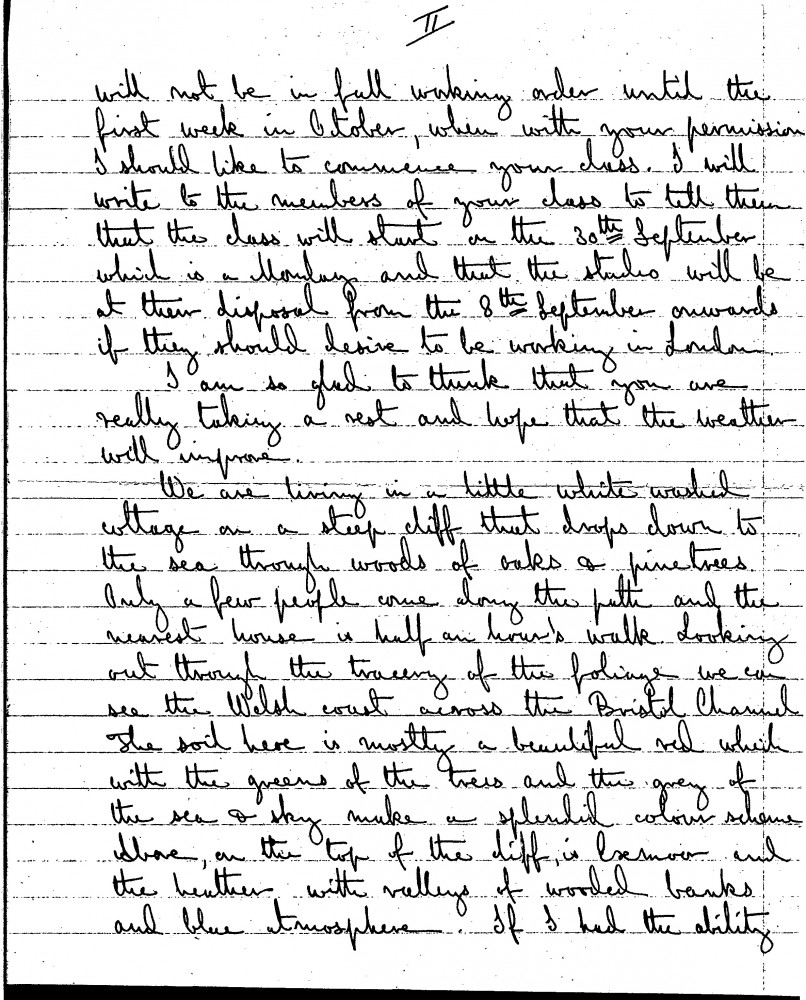 II
will not be in full working order until the
first week in October, when with your permission
I should like to commence your class. I will
write to the members of your class to tell them
that the class will start on the 30th September
which is a Monday and that the studio will be
at their disposal from the 8th September onwards
if they should desire to be working in London.
I am so glad to think that you are
really taking a rest and hope that the weather
will improve.
We are living in a little white washed
cottage on a steep cliff that drops down to
the sea through woods of oaks & pinetrees
Only a few people come along the path and the
nearest house is half an hour's walk. Looking
out through the tracery of the foliage we can
see the Welsh coast across the Bristol Channel
The soil here is mostly a beautiful red which
with the greens of the trees and the grey of
the sea & sky make a splendid colour scheme
Above, on the top of the cliff, is Exmoor and
the heather with valleys of wooded banks
and blue atmosphere. If I had the ability